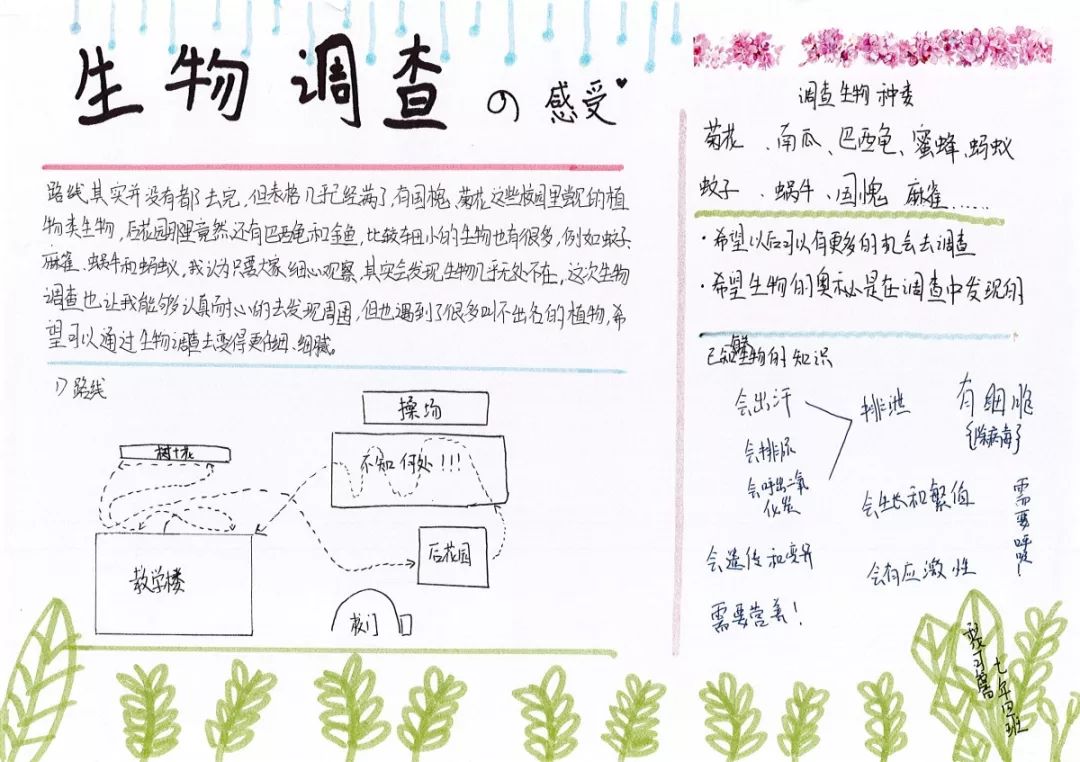 生物调查の感受
路线其实并没有都去完,但表格几乎已经满了,有国槐、菊花这些校园里常见的植
物类生物,后花园那里竟然还有巴西龟和金鱼,比较细小的生物也有很多,例如蚊子、
麻雀、蜗牛和蚂蚁,我认为只要大家细心观察,其实会发现生物几乎无处不在,这次生物
调查也让我能够认真耐心的去发现周围,但也遇到了很多叫不出名的植物,希
望可以通过生物调查去变得更仔细、细腻。
1) 路线
操场
树+花
不知何处!!!
教学楼
后花园
校门
调查生物种类
菊花、南瓜、巴西龟、蜜蜂、蚂蚁
蚊子、蜗牛、国槐 麻雀……
·希望以后可以有更多的机会去调查
·希望生物的奥秘是在调查中发现的
已知生物的知识
会出汗
会排尿
会呼出二氧
化炭
排泄
有细胞
(除病毒)
会生长和繁殖
需要呼吸!
会遗传和变异
会有应激性
需要营养!
七年四班